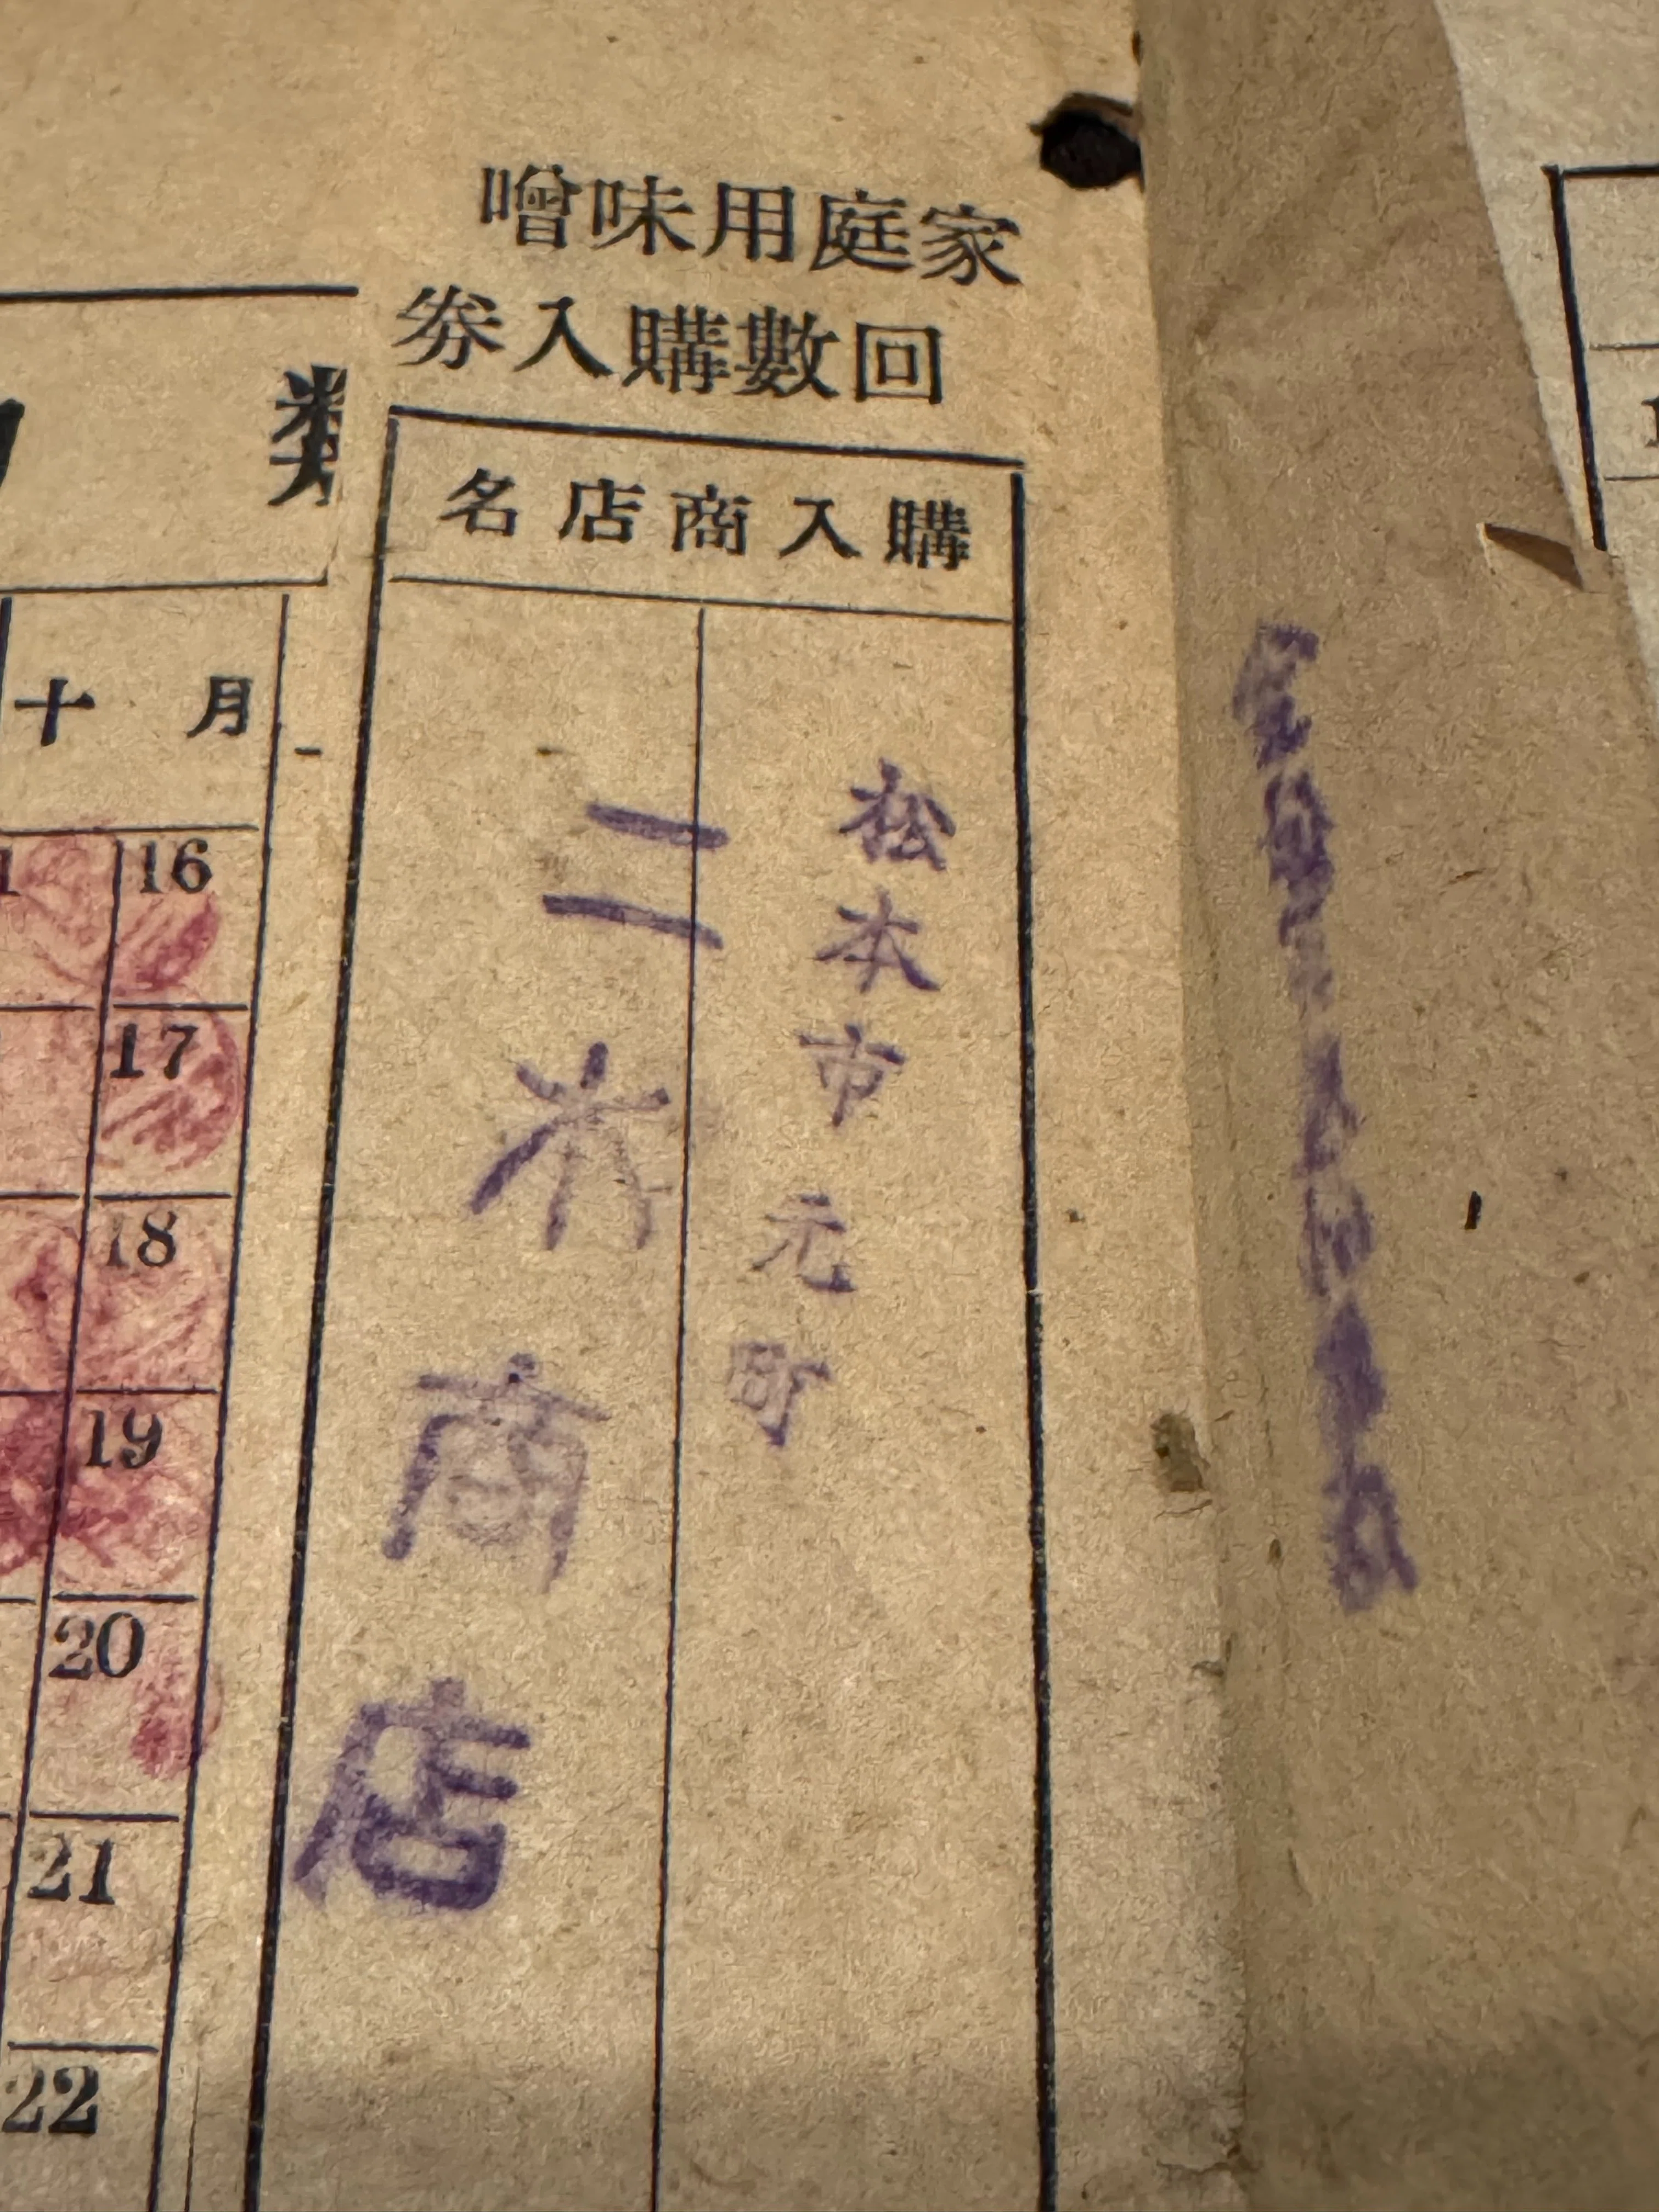 家庭用味噌
回數購入劵
購入商店名
松本市元町
二木商店
類
月 十
16
17
18
19
20
21
22